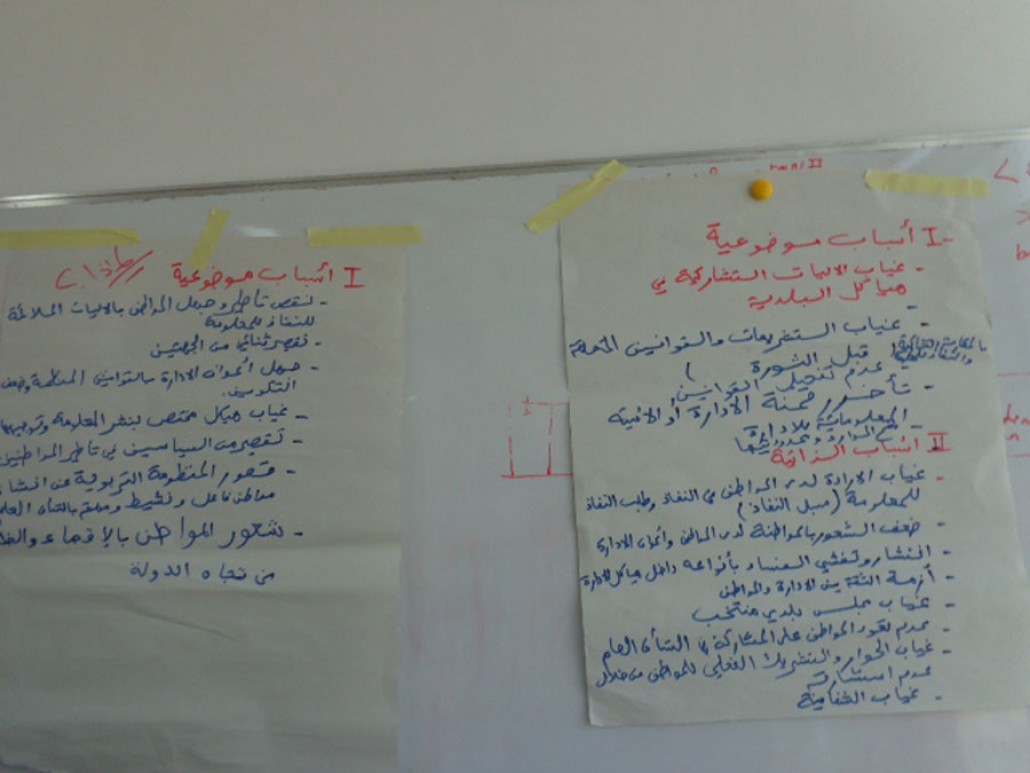 I- أسباب موضوعية
- غياب الاليات التشاركية في
هياكل البلدية
- غياب التشريعات والقوانين المتعلقة
قبل الثورة
عدم تفعيل القوانين
- تأخر رقمنة الادارة أو الانية
المعلوماتية للادارة
II أسباب الذاتية
- غياب الارادة لدى المواطن في النفاذ وطلب النفاذ
للمعلومة (سبل النفاذ)
- ضعف الشعور بالمواطنة لدى المواطن وأعوان الادارة
- انتشار وتفشي الفساد بأنواعه داخل هياكل الادارة
- أزمة الثقة بين الادارة والمواطن
- غياب مجلس بلدي منتخب
- عدم تعود المواطن على المشاركة في الشأن العام
- غياب الحوار والتشريك الفعلي للمواطن من خلال
عدم استشارته
- غياب الشفافية
I أسباب موضوعية
- نقص تأطير وجهل المواطن بالاليات الملائمة
للنفاذ للمعلومة
- تقصير ثنائي من الجهتين
- جهل أعوان الادارة بالقوانين المنظمة وضعف
التكوين.
- غياب هيكل مختص بنشر المعلومة
- تقصير من السياسيين في تأطير المواطنين
- قصور المنظومة التربوية عن انشاء
مواطن فاعل ونشيط وملم بالشأن العام
- شعور المواطن بالإقصاء
من تجاه الدولة
II